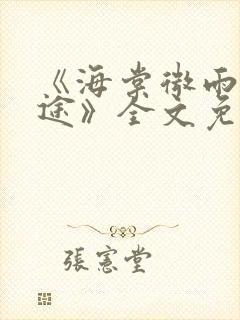 《海棠微雨
途》全文免
張憲堂